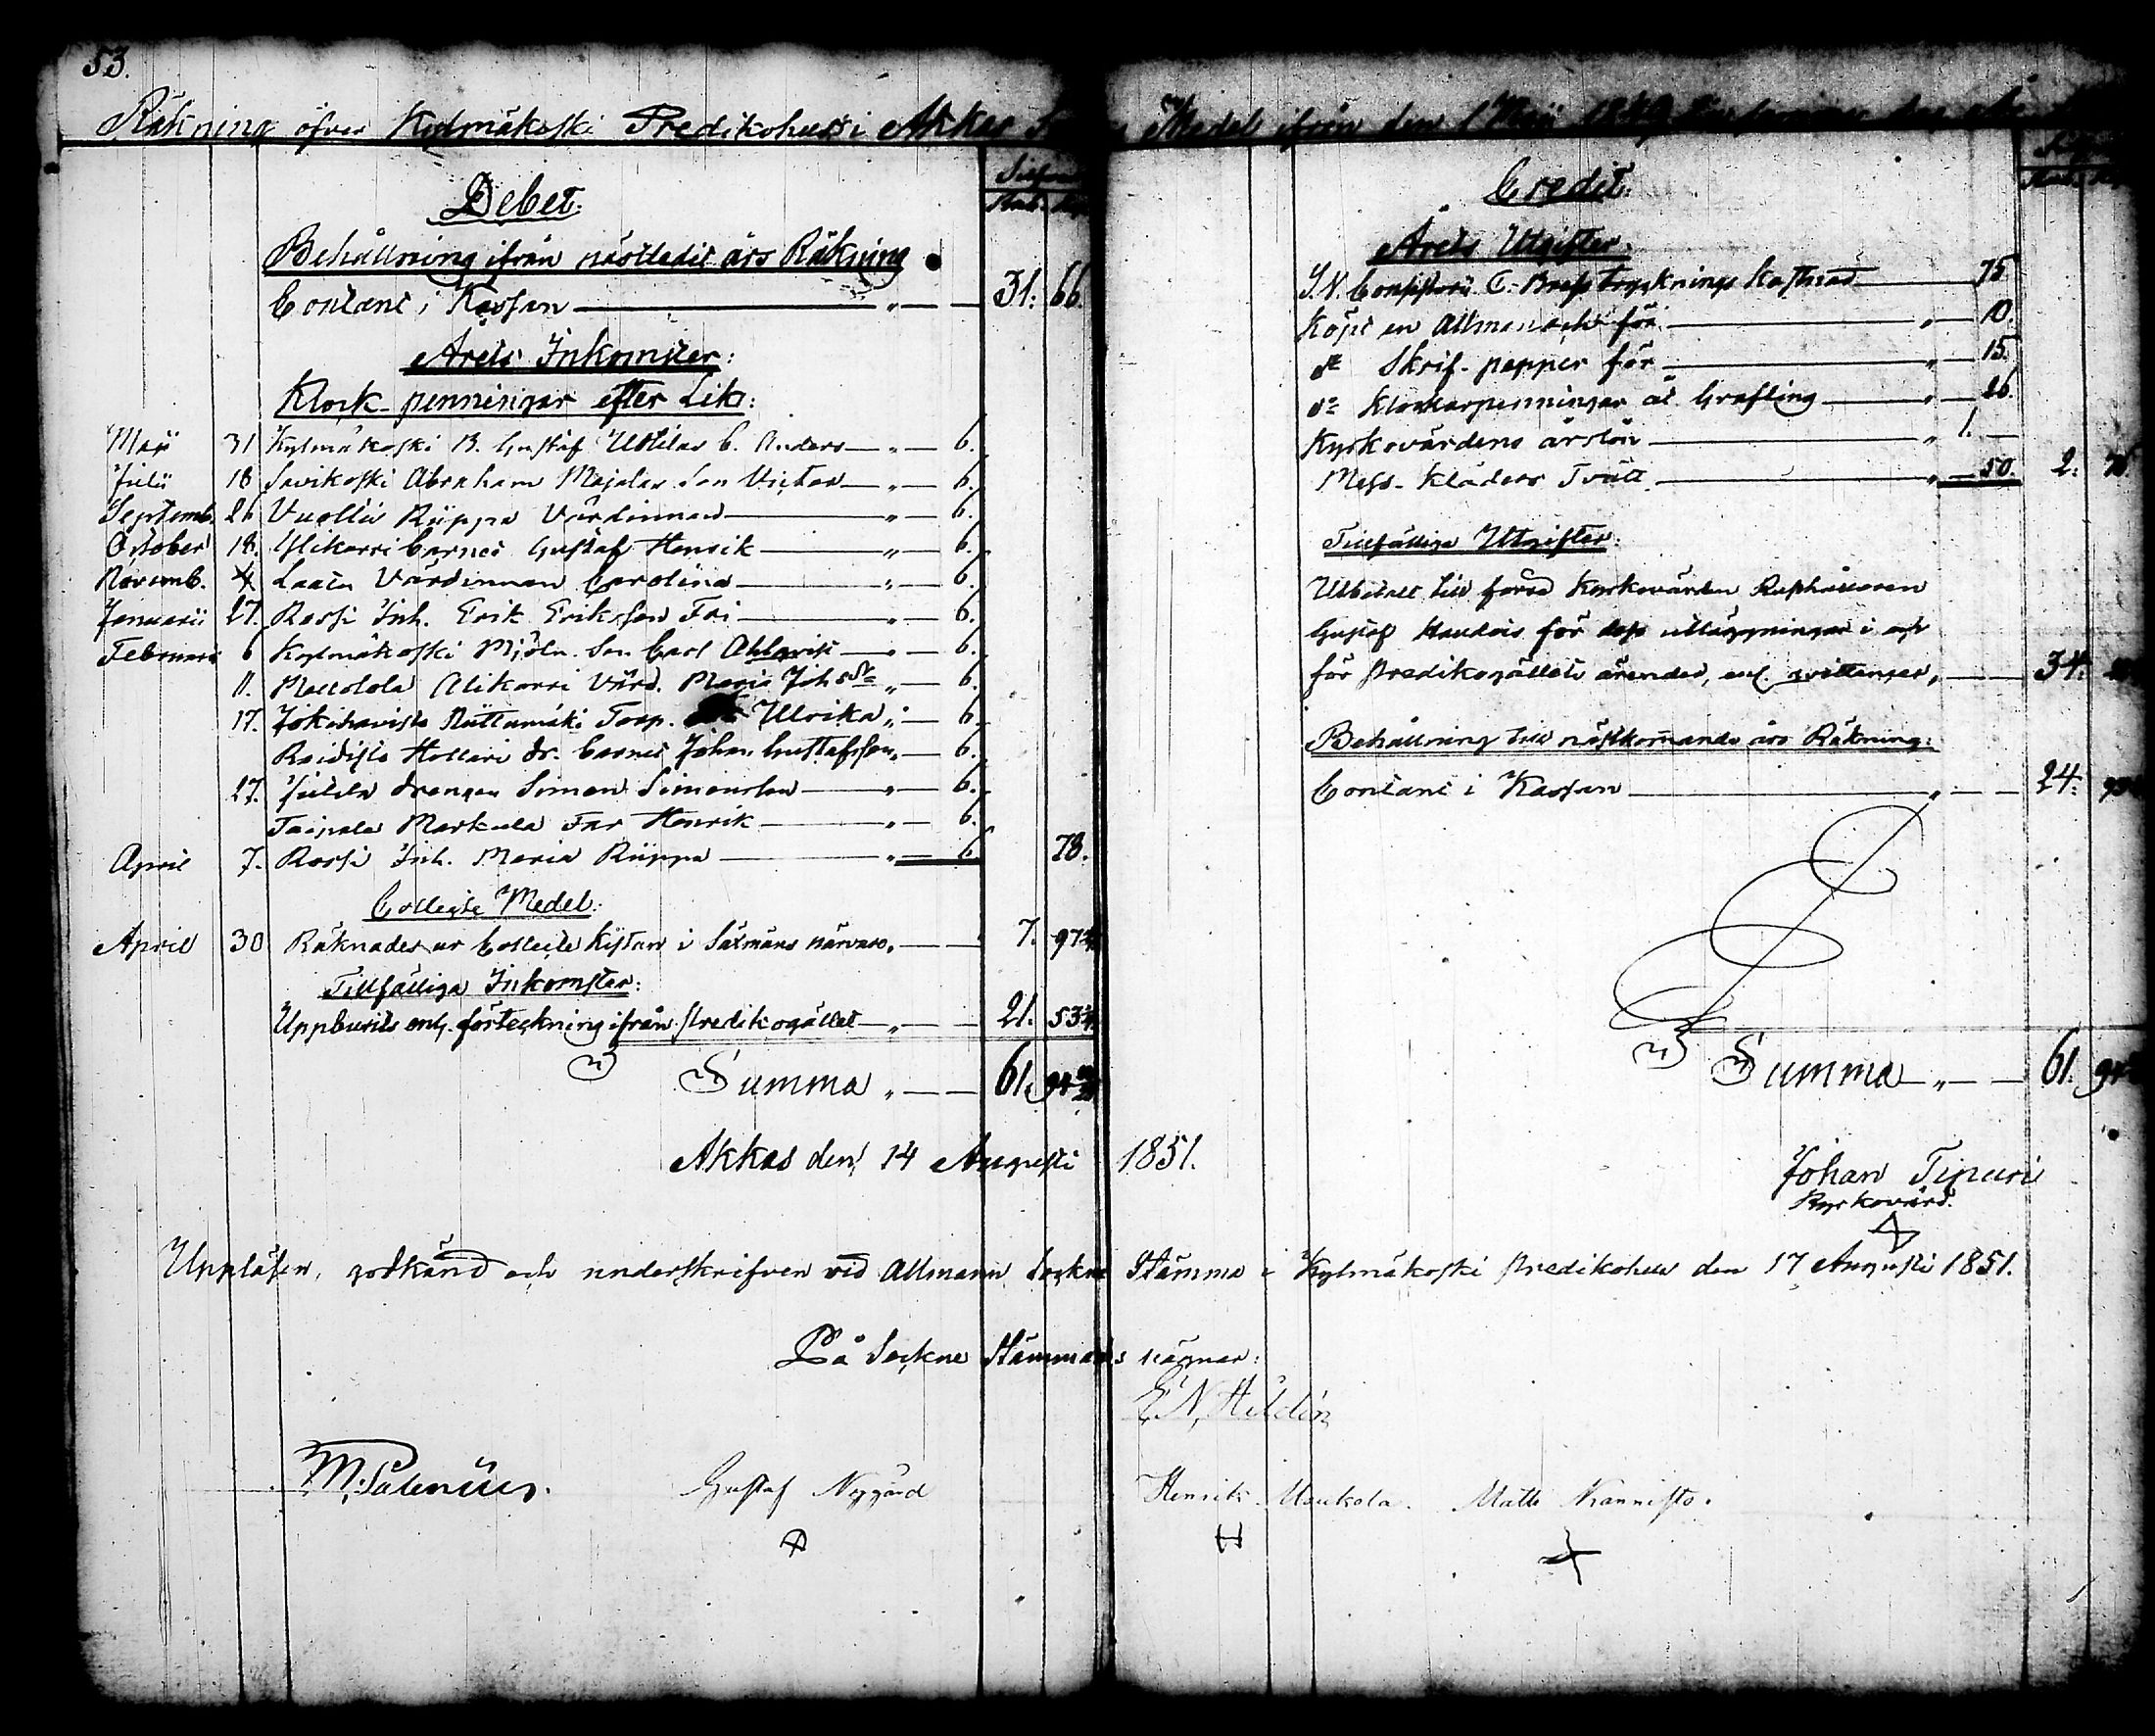 53.
Räkning öfver Kylmäkoski Predikohus i Akkas Medel ifrån den 1 Maji 1849
Debet.
Silfver
Rub. Kop.
Behållning ifrån nästledit års Räkning
Contant i Kassan — " — 31. 66.
Årets Inkomster:
Klock-penningar efter Lik:
Maji 31 Kylmäkoski B. Gustaf Uotilas b. Anders — " — 6.
Julii 18 Savikoski Abraham Majalas Son Victor — " — 6.
Septemb. 26 Vuollis Riippa Värdinnan — " — 6.
October 18. Ylikorri barnet Gustaf Henrik — " — 6.
Novemb. 4 Laata Värdinnan Carolina — " — 6.
Januarii 27. Rossi Inh. Erik Eriksson Fri — " — 6.
Februarii 6 Kylmäkoski Mjöln. Son Carl Ahlqvist — " — 6.
11. Mattolola Alikorri Värd. Maria Johsdr " — 6.
17. Jokihavisto Niittumäki Torp. Ulrika " — 6.
Raidisto Hollari dr. barnet Johan Gustafsson " — 6.
27. Julila drengen Simon Simonsson — " — 6.
Taipale Markula Far Henrik — " — 6.
April 7. Rossi Inh. Maria Riippa — " — 6. 78.
Collecte Medel:
April 30 Räknades ur Collecte Kistan i Säxmäns närvaro, — 7. 97
Tillfälliga Inkomster:
Uppburits enl. förteckning ifrån predikogället — " — 21. 53
Summa " — 61. 94
Credit:
Årets Utgifter:
J. N. Consistorii C. Brefs tryknings Kostnad — 75
Köpt en Allmanach för — " — 10.
do Skrif-papper för — " — 15.
do Klockarpenningar åt Grafling — " — 26.
Kyrkovärdens årslön — " 1. —
Mess-Kläders Tvätt — " — 50. 2. 76
Tillfälliga Utgifter:
Utbetalt till förra Kyrkovärden Rusthållaren
Gustaf Haudois för dess utläggningar i och
för predikogällets ärender, enl. qvittenser, — 34.
Behållning till nästkommande års Räkning:
Contant i Kassan — " — 24.
Summa — " — 61. 94
Akkas den 14 Augusti 1851.
Johan Tipuri
Kyrkovärd.
Uppläsen, godkänd och underskrifven vid Allmänn Sockne Stämma i Kylmäkoski predikohus den 17 Augusti 1851.
På Sockne Stämmans vägnar:
E. N. Hildén
M: Salenius. Gustaf Nygård Henrik Uoukola. Matts Nannisto.